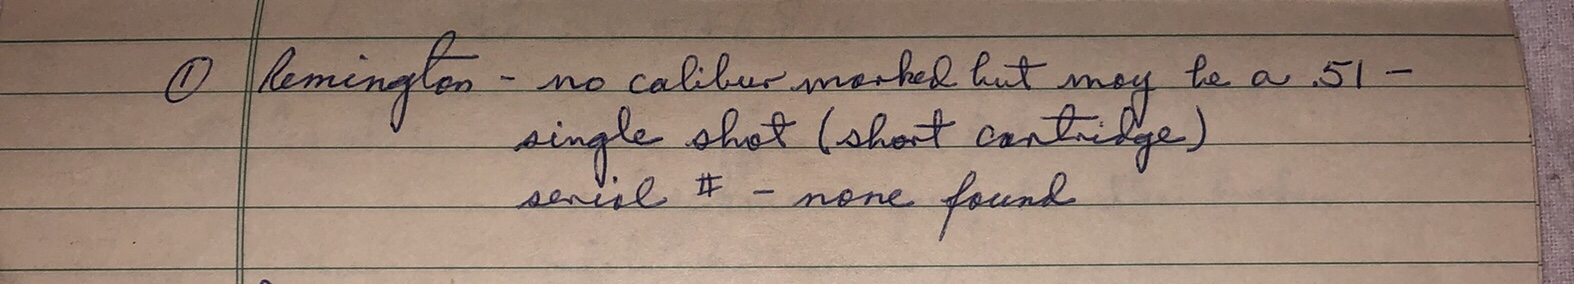 ① Remington - no caliber marked but may be a .51 -
single shot (short cartridge)
serial # - none found